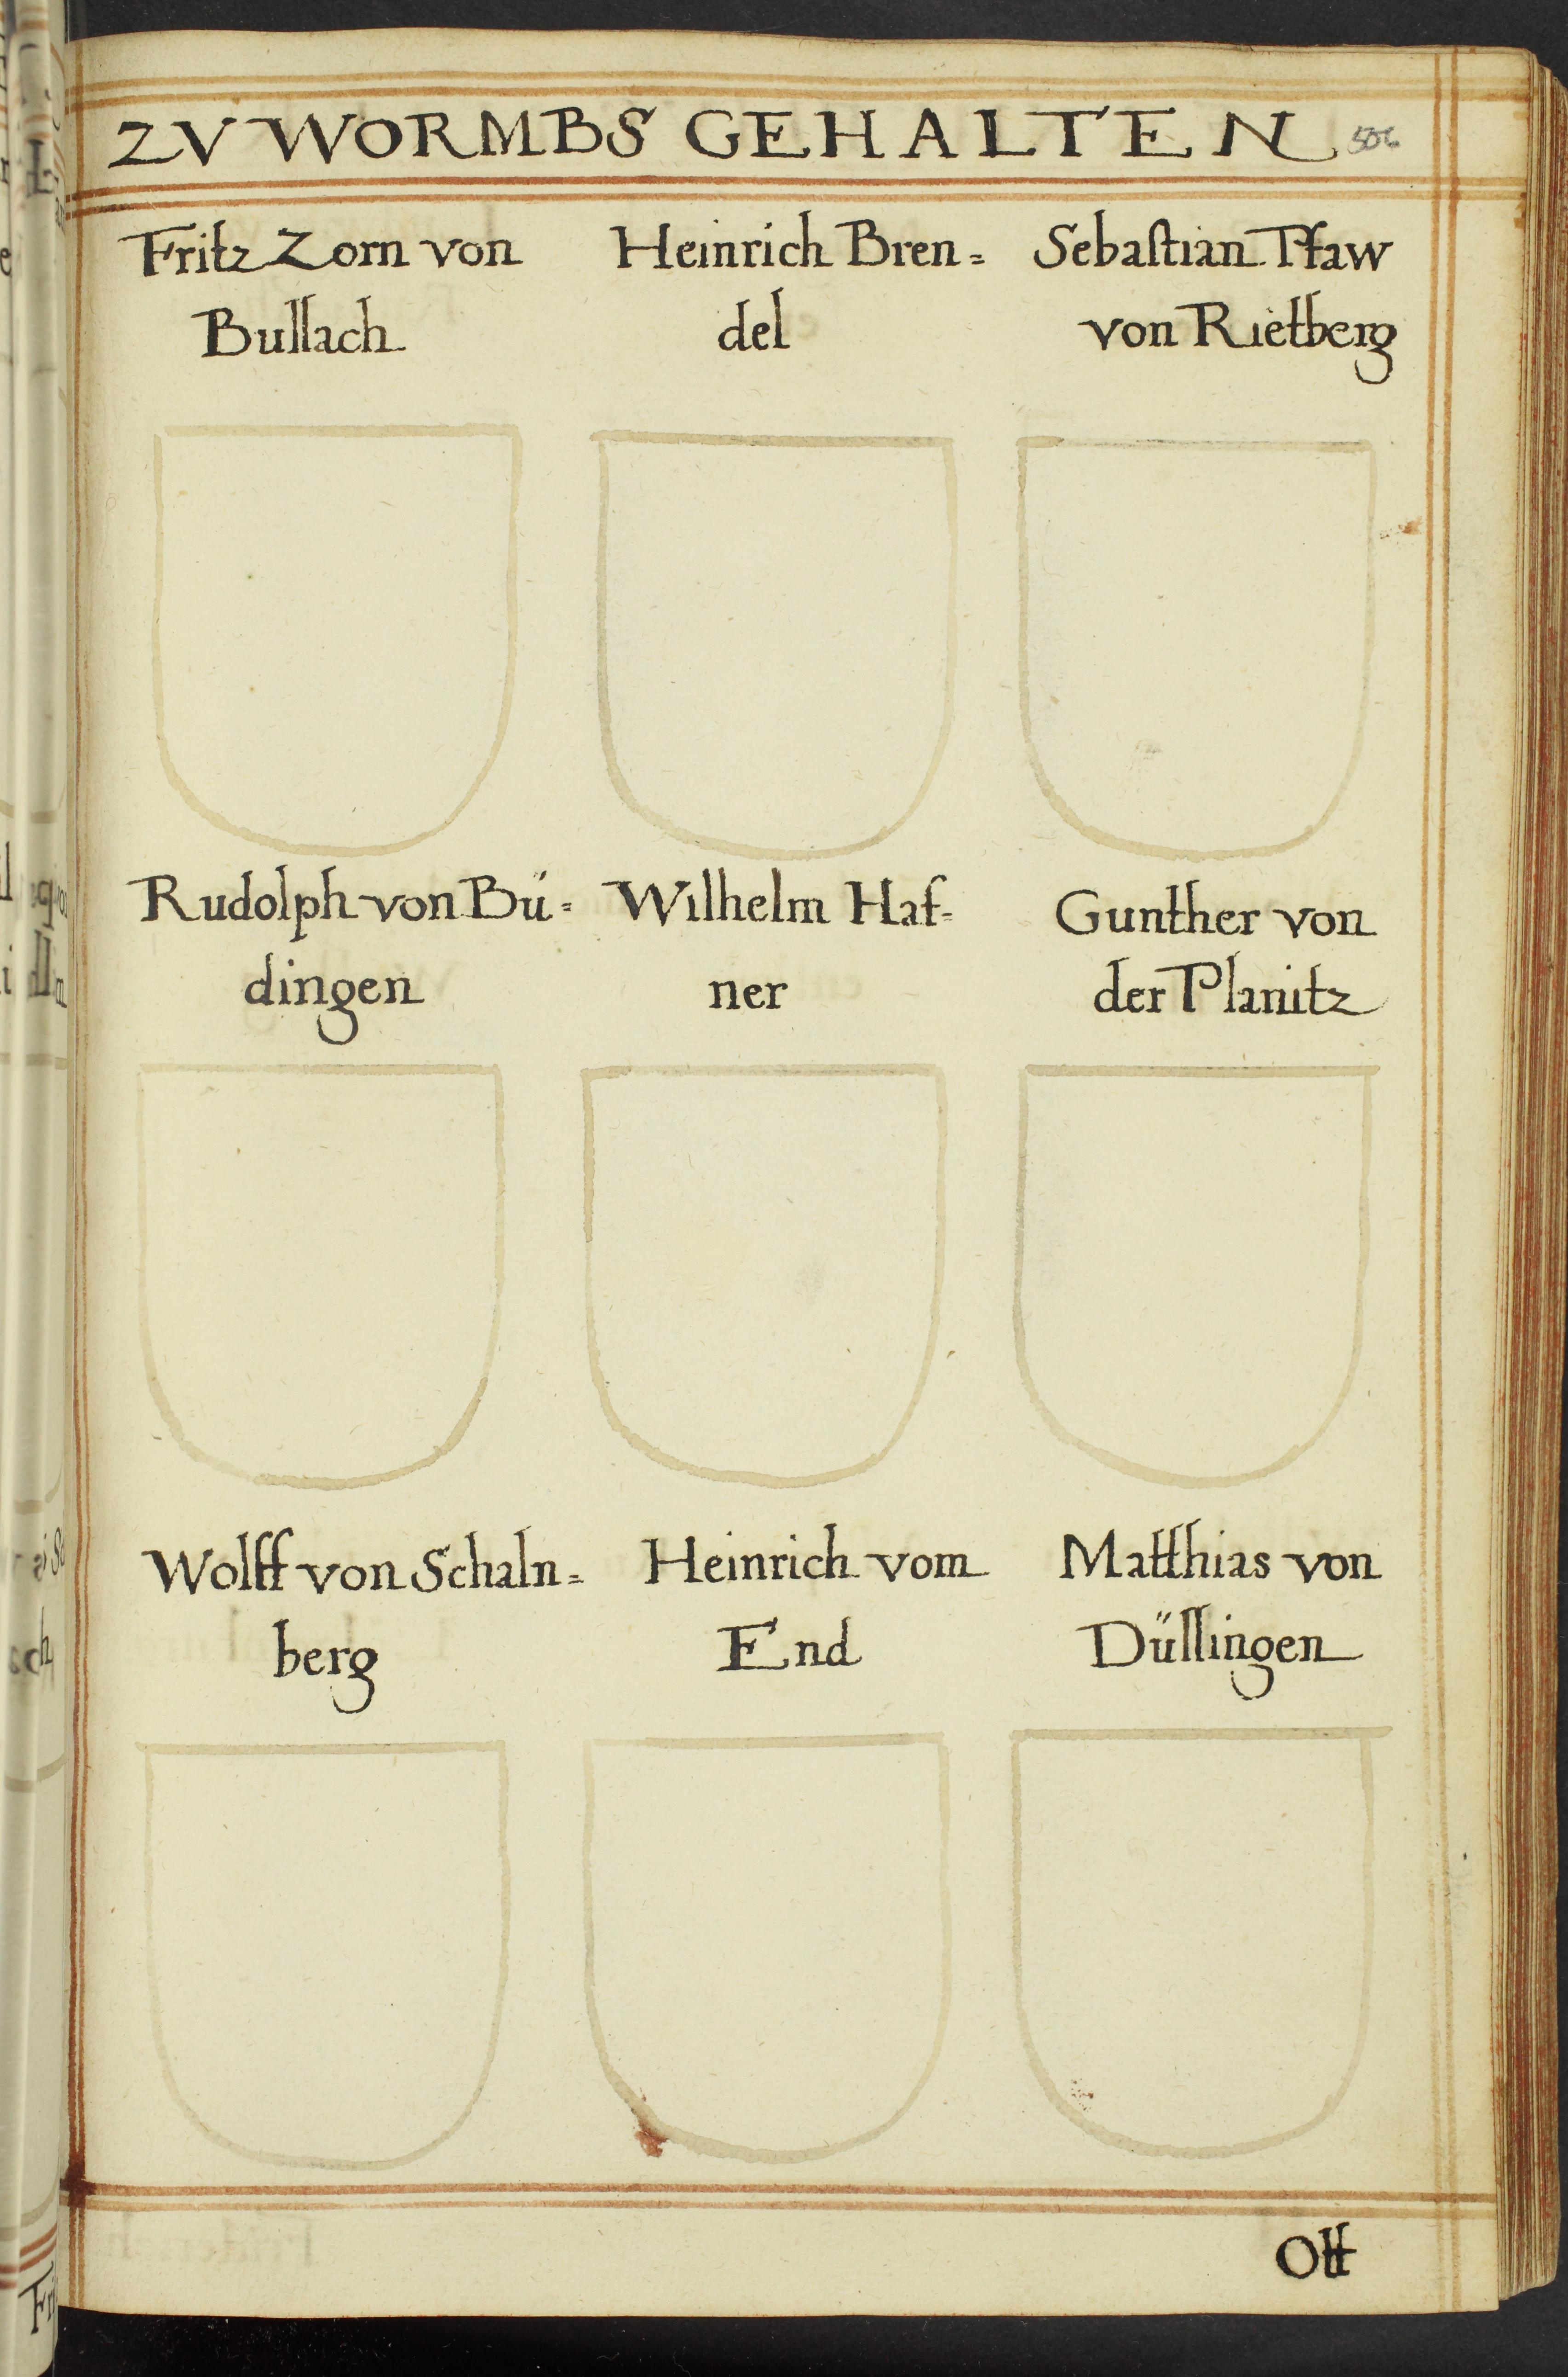 ZV WORMBS GEHALTEN 506
Fritz Zorn von
Bullach
Heinrich Bren=
del
Sebastian Pfaw
von Rietberg
Rudolph von Bü=
dingen
Wilhelm Haf=
ner
Gunther von
der Planitz
Wolff von Schaln=
berg
Heinrich vom
End
Matthias von
Düllingen
Ott